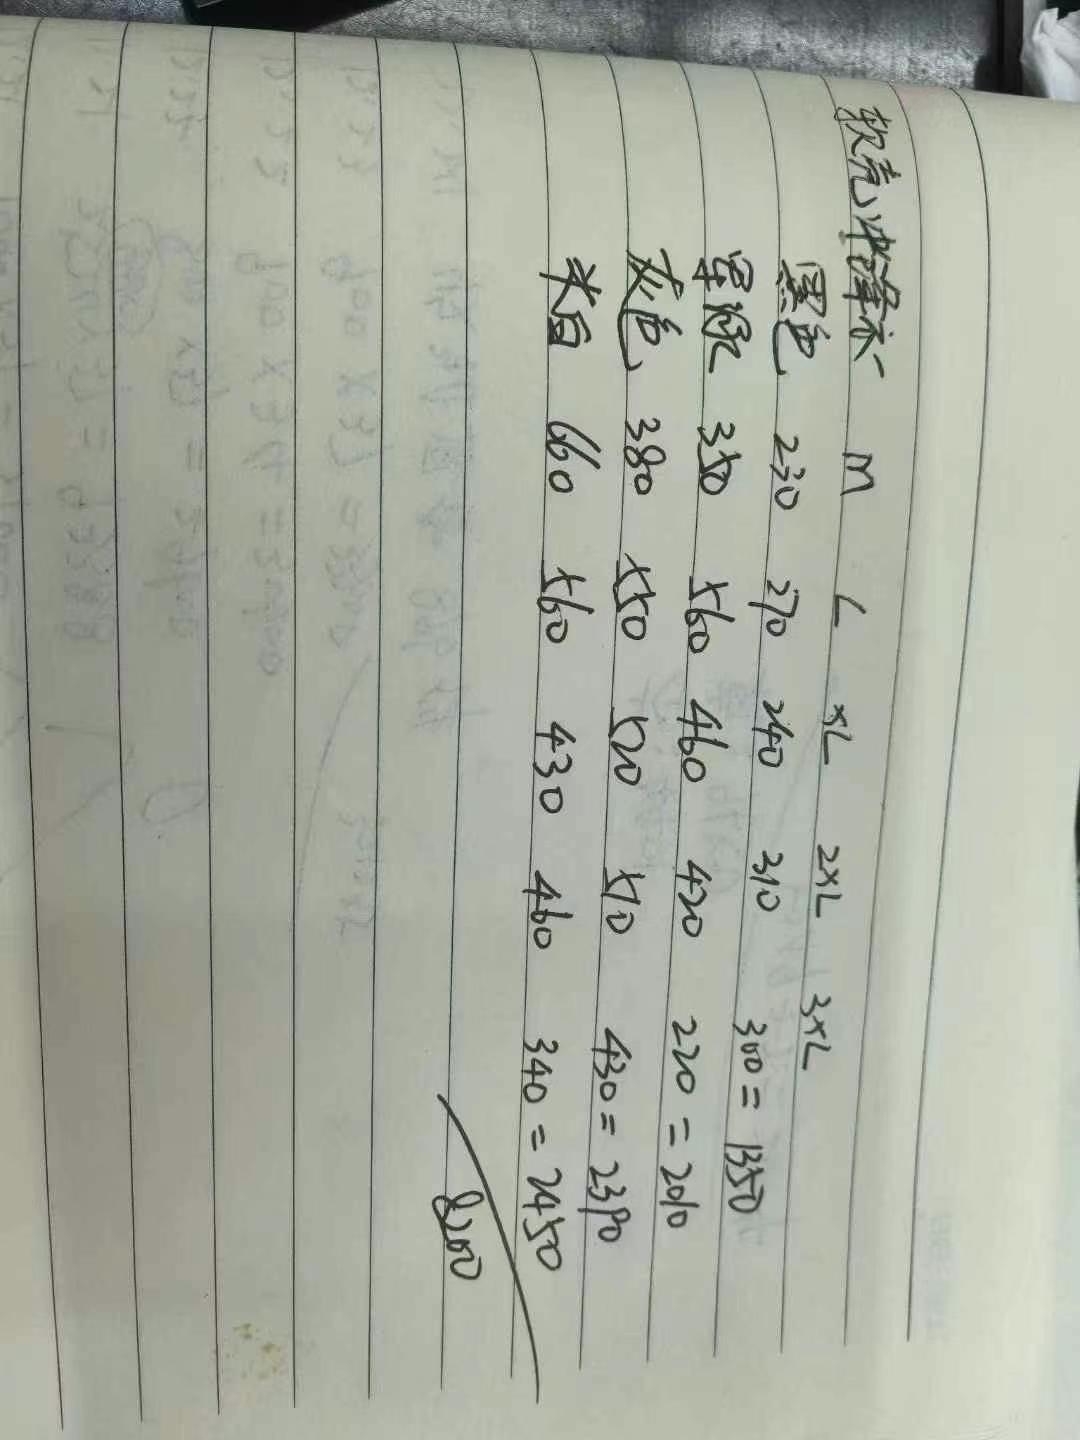 软壳冲锋衣 M L XL 2XL 3XL
黑色 230 270 240 310 300 = 1350
军绿 350 560 460 420 220 = 2010
灰色 380 550 520 510 430 = 2390
米白 660 560 430 460 340 = 2450
8200